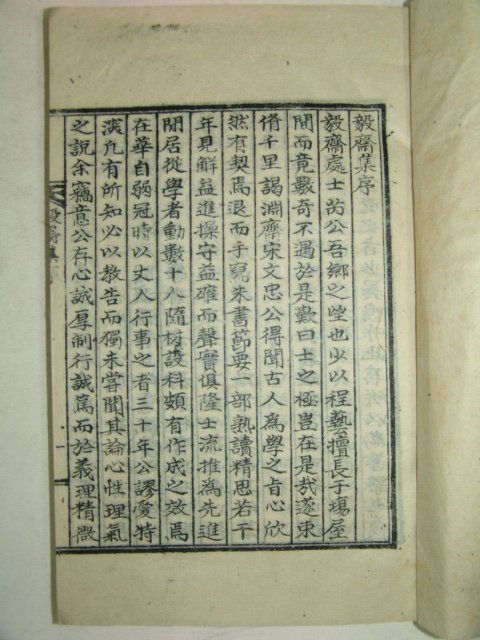 毅齋集序
毅齋處士芮公吾鄕之望也少以程藝擅長于塲屋
間而竟數奇不遇於是歎曰士之極豈在是哉遂束
脩千里謁淵齋宋文忠公得聞古人爲學之旨心欣
然有契焉退而手寫朱書節要一部熟讀精思若干
年見解益進操守益確而聲實俱隆士流推爲先進
閒居從學者動數十人隨材設科頗有作成之效焉
在華自弱冠時以丈人行事之者三十年公謬愛特
深凡有所知必以敎告而獨未嘗聞其論心性理氣
之說余竊意公存心誠厚制行誠篤而於義理精微